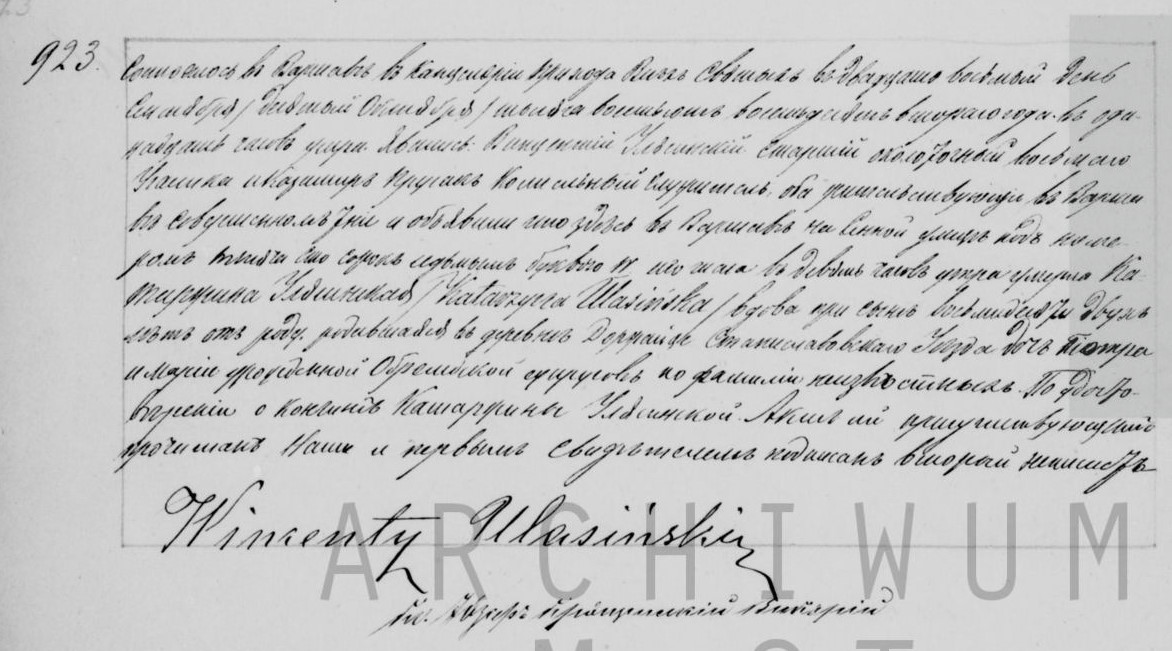 923.
Состоялось въ Варшавѣ въ Канцеляріи Прихода Всѣхъ Святыхъ въ двадцать восьмый день
Сентября / десятый Октября / тысяча восемьсотъ восемьдесятъ втораго года въ оди-
надцать часовъ утра. Явились: Викентій Улясинскій старшій околоточный восьмаго
Участка и Казимиръ Костельный служитель, оба жительствующіе въ Варша
въ совершеннолѣтніе и объявили что здѣсь въ Варшавѣ на Сенной улицѣ подъ номе-
ромъ тысяча сто сорокъ седьмымъ буквою числа въ девять часовъ утра умерла Ка-
таржина Улясинская / Katarzyna Ulasińska / вдова при сынѣ восьмидесяти двухъ
лѣтъ отъ роду, родившаяся въ деревнѣ Станиславовскаго Уѣзда дочь Петра
и Маріи урожденной супруговъ по фамиліи неизвѣстныхъ. По удосто-
вѣреніи о кончинѣ Катаржины Улясинской. Актъ сей присутствующимъ
прочитанъ Нами и первымъ свидѣтелемъ подписанъ второй неписьм
Wincenty Ulasiński
Кс. Викарій
ARCHIWUM